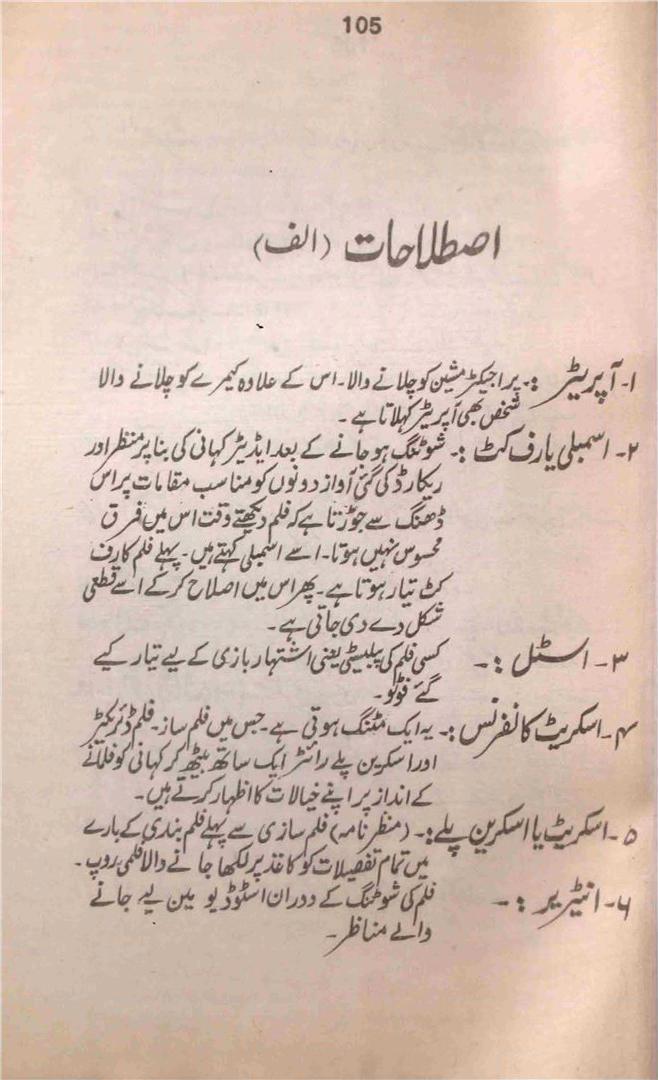 105
اصطلاحات (الف)
۱۔ آپریٹر :۔ پراجیکٹر مشین کو چلانے والا۔ اس کے علاوہ کیمرے کو چلانے والا
شخص بھی آپریٹر کہلاتا ہے۔
۲۔ اسمبلی یا رف کٹ :۔ شوٹنگ ہو جانے کے بعد ایڈیٹر کہانی کی بنا پر منظر اور
ریکارڈ کی گئی آواز دونوں کو مناسب مقامات پر اس
ڈھنگ سے جوڑتا ہے کہ فلم دیکھتے وقت اس میں فرق
محسوس نہیں ہوتا۔ اسے اسمبلی کہتے ہیں۔ پہلے فلم کا رف
کٹ تیار ہوتا ہے۔ پھر اس میں اصلاح کر کے اسے قطعی
شکل دے دی جاتی ہے۔
۳۔ اسٹل :۔ کسی فلم کی پبلیسٹی یعنی اشتہار بازی کے لیے تیار کیے
گئے فوٹو۔
۴۔ اسکرپٹ کانفرنس :۔ یہ ایک مٹنگ ہوتی ہے۔ جس میں فلم ساز۔ فلم ڈائریکٹر
اور اسکرین پلے رائٹر ایک ساتھ بیٹھ کر کہانی کو فلمانے
کے انداز پر اپنے خیالات کا اظہار کرتے ہیں۔
۵۔ اسکرپٹ یا اسکرین پلے :۔ (منظر نامہ) فلم سازی سے پہلے فلم بندی کے بارے
میں تمام تفصیلات کو کاغذ پر لکھا جانے والا فلمی روپ۔
۶۔ انٹیریر :۔ فلم کی شوٹنگ کے دوران اسٹوڈیو مین لیے جانے
والے مناظر۔